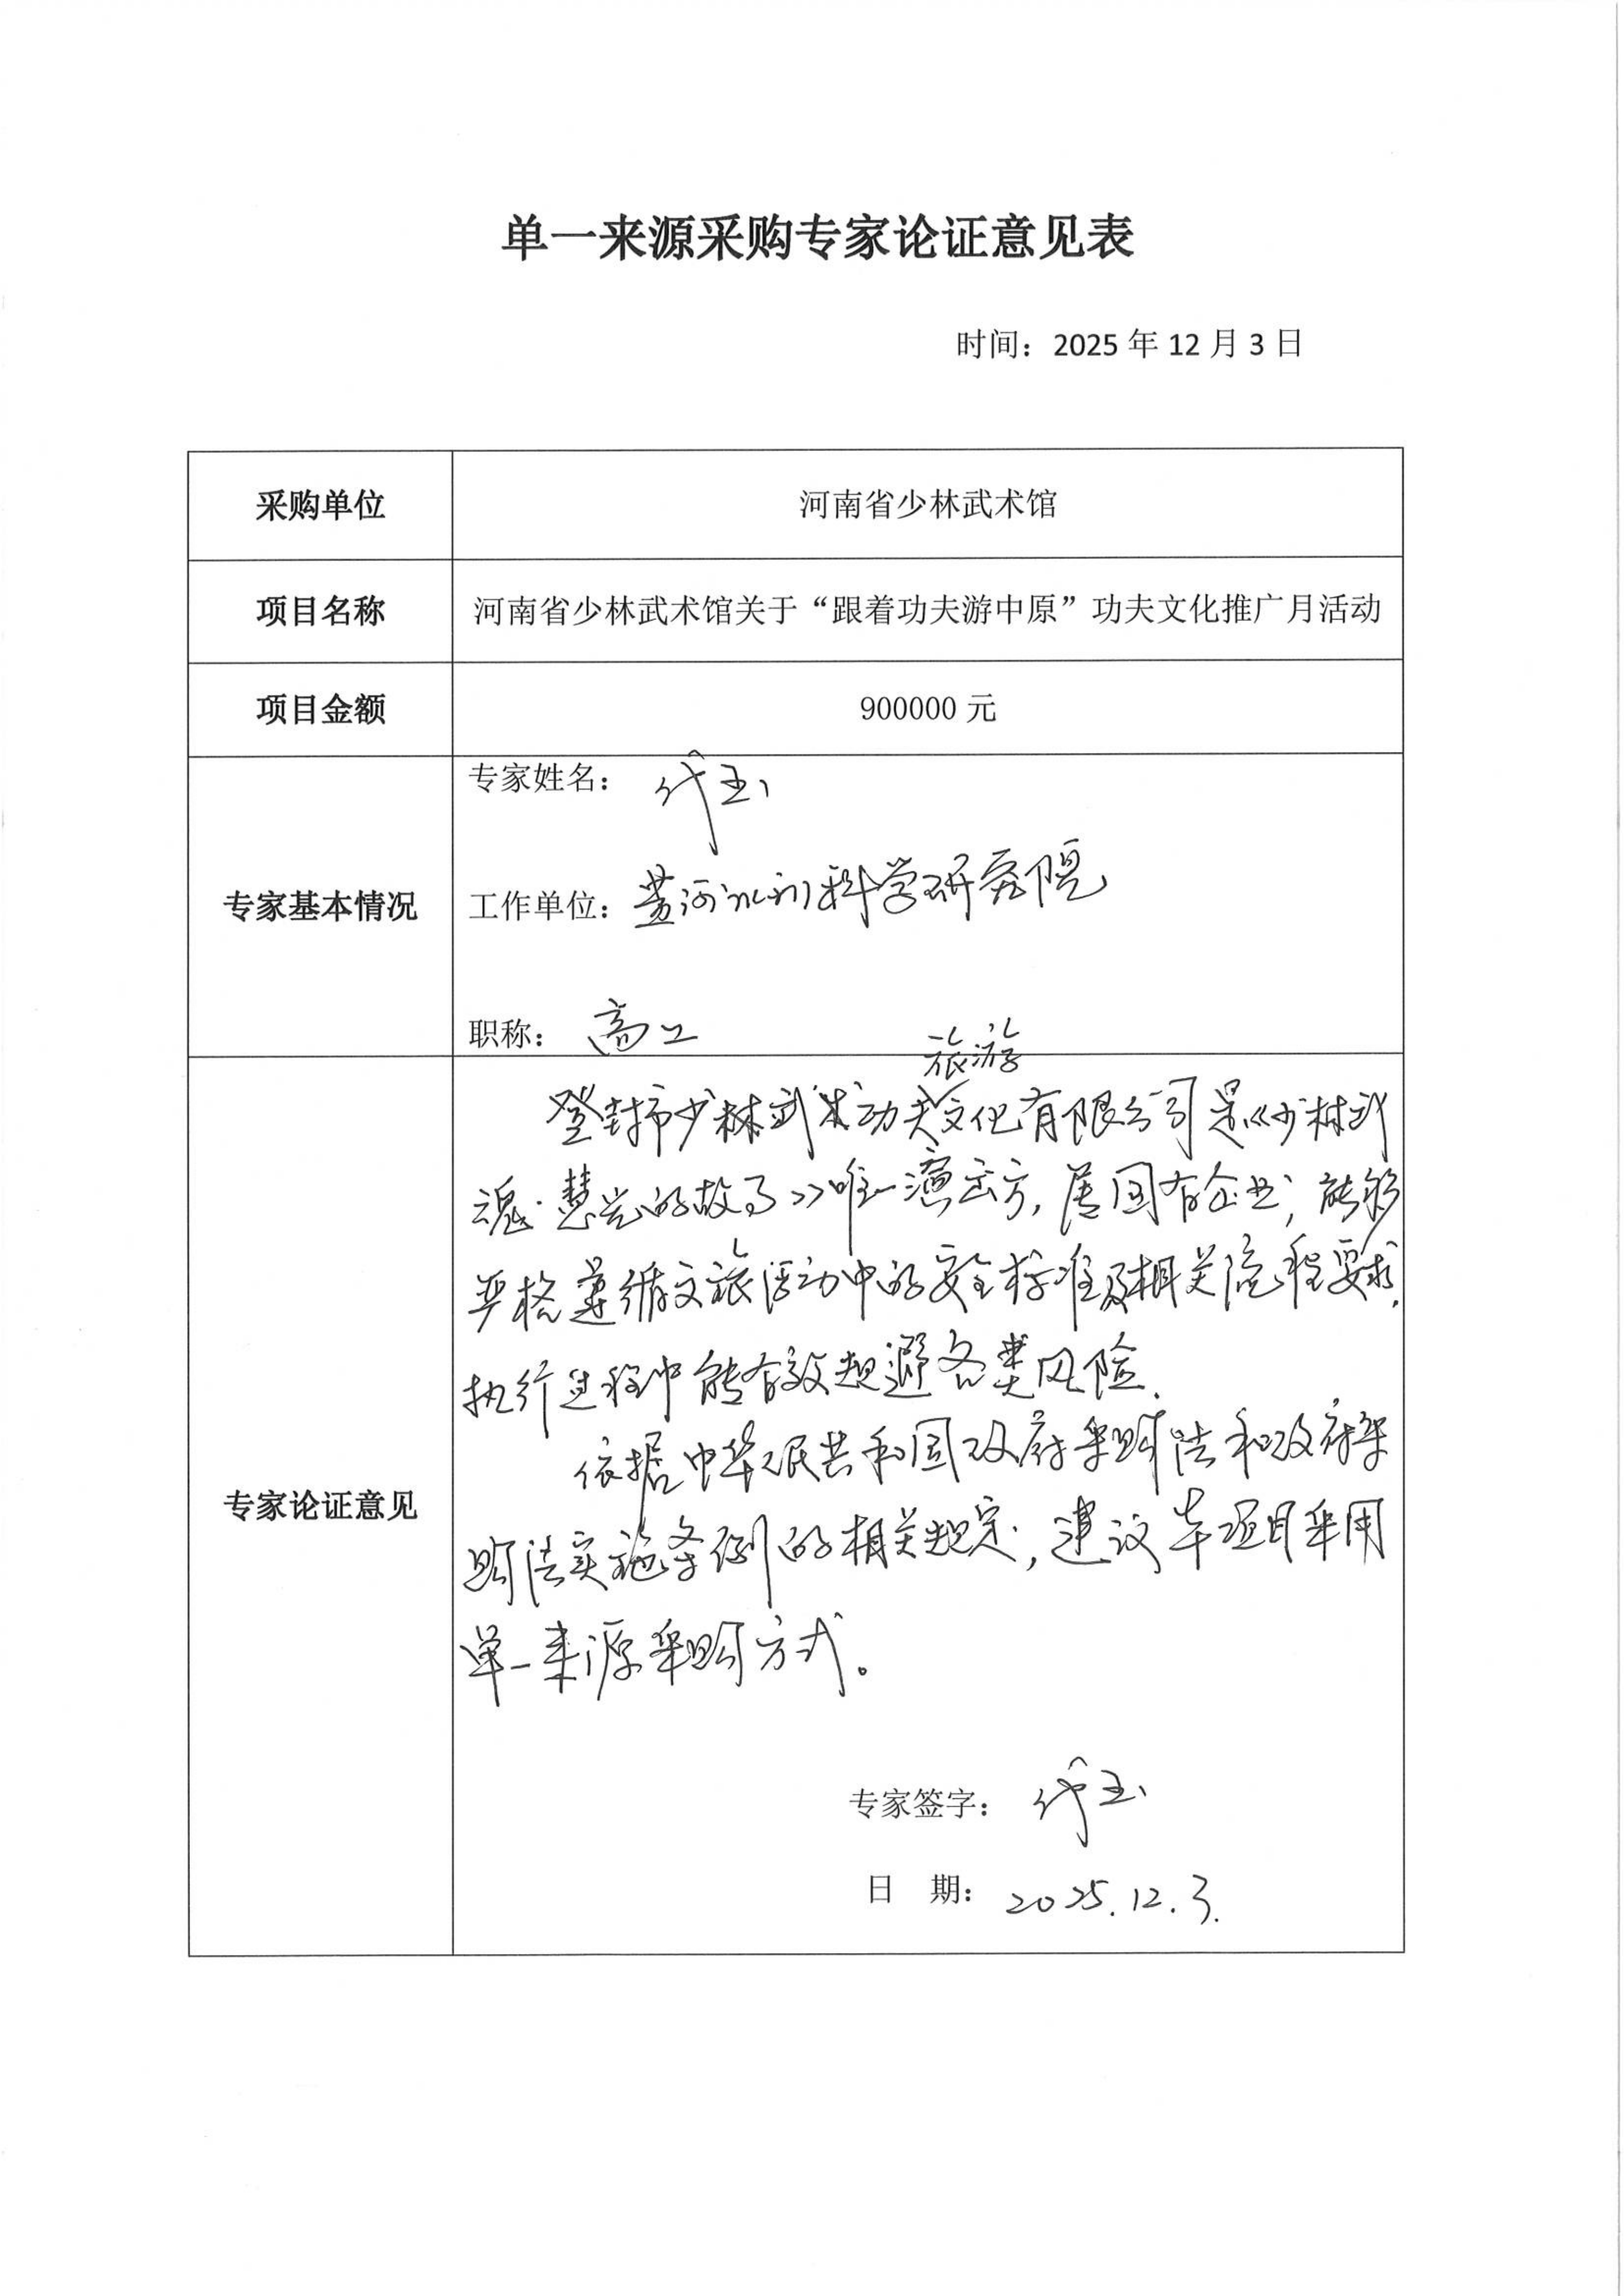 单一来源采购专家论证意见表
时间：2025 年 12 月 3 日
采购单位
河南省少林武术馆
项目名称
河南省少林武术馆关于“跟着功夫游中原”功夫文化推广月活动
项目金额
900000 元
专家基本情况
专家姓名：代玉
工作单位：黄河水利科学研究院
职称：高工
专家论证意见
旅游
登封市少林武术功夫文化有限公司是《少林武
魂·慧光的故事》唯一演出方，属国有企业，能够
严格遵循文旅活动中的安全标准及相关流程要求，
执行过程中能有效规避各类风险.
依据中华人民共和国政府采购法和政府采
购法实施条例的相关规定，建议本项目采用
单一来源采购方式。
专家签字：代玉
日 期：2025.12.3.